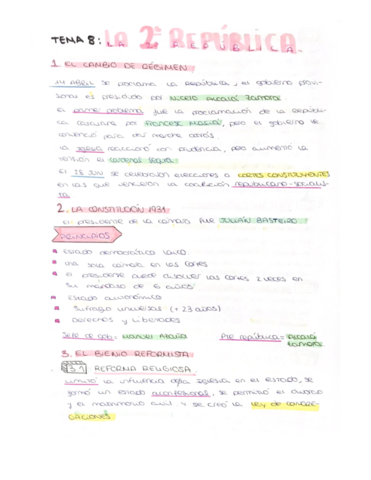 TEMA 8: LA 2ª REPÚBLICA.
1. EL CAMBIO DE RÉGIMEN
14 ABRIL se proclama la República, el gobierno provi-
sional es presidido por Niceto Alcalá Zamora
El primer problema fue la proclamación de la Repúbli-
ca catalana por Francesc Macià, pero el gobierno le
convenció para dar marcha atrás.
La Iglesia reaccionó con prudencia, pero aumentó la
tensión el cardenal Segura.
El 28 JUN se celebraron elecciones a CORTES CONSTITUYENTES
en las que venció la coalición republicano-socialis-
ta
2. LA CONSTITUCIÓN 1931
El presidente de la cámara fue JULIÁN BASTEIRO
PRINCIPIOS
Estado democrático laico
Una sola cámara en las Cortes
El presidente puede disolver las Cortes 2 veces en
su mandato de 6 años
Estado autonómico
Sufragio universal (+23 años)
Derechos y libertades
Jefe de gob = Manuel Azaña Pte república = Alcalá
Zamora
3. EL BIENIO REFORMISTA
3.1 REFORMA RELIGIOSA
Limitó la influencia de la Iglesia en el Estado, se
formó un estado aconfesional, se permitió el divorcio
y el matrimonio civil y se creó la LEY DE CONGRE-
GACIONES